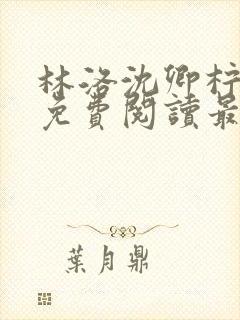 林洛沈卿柠
免費閱讀最
葉月鼎